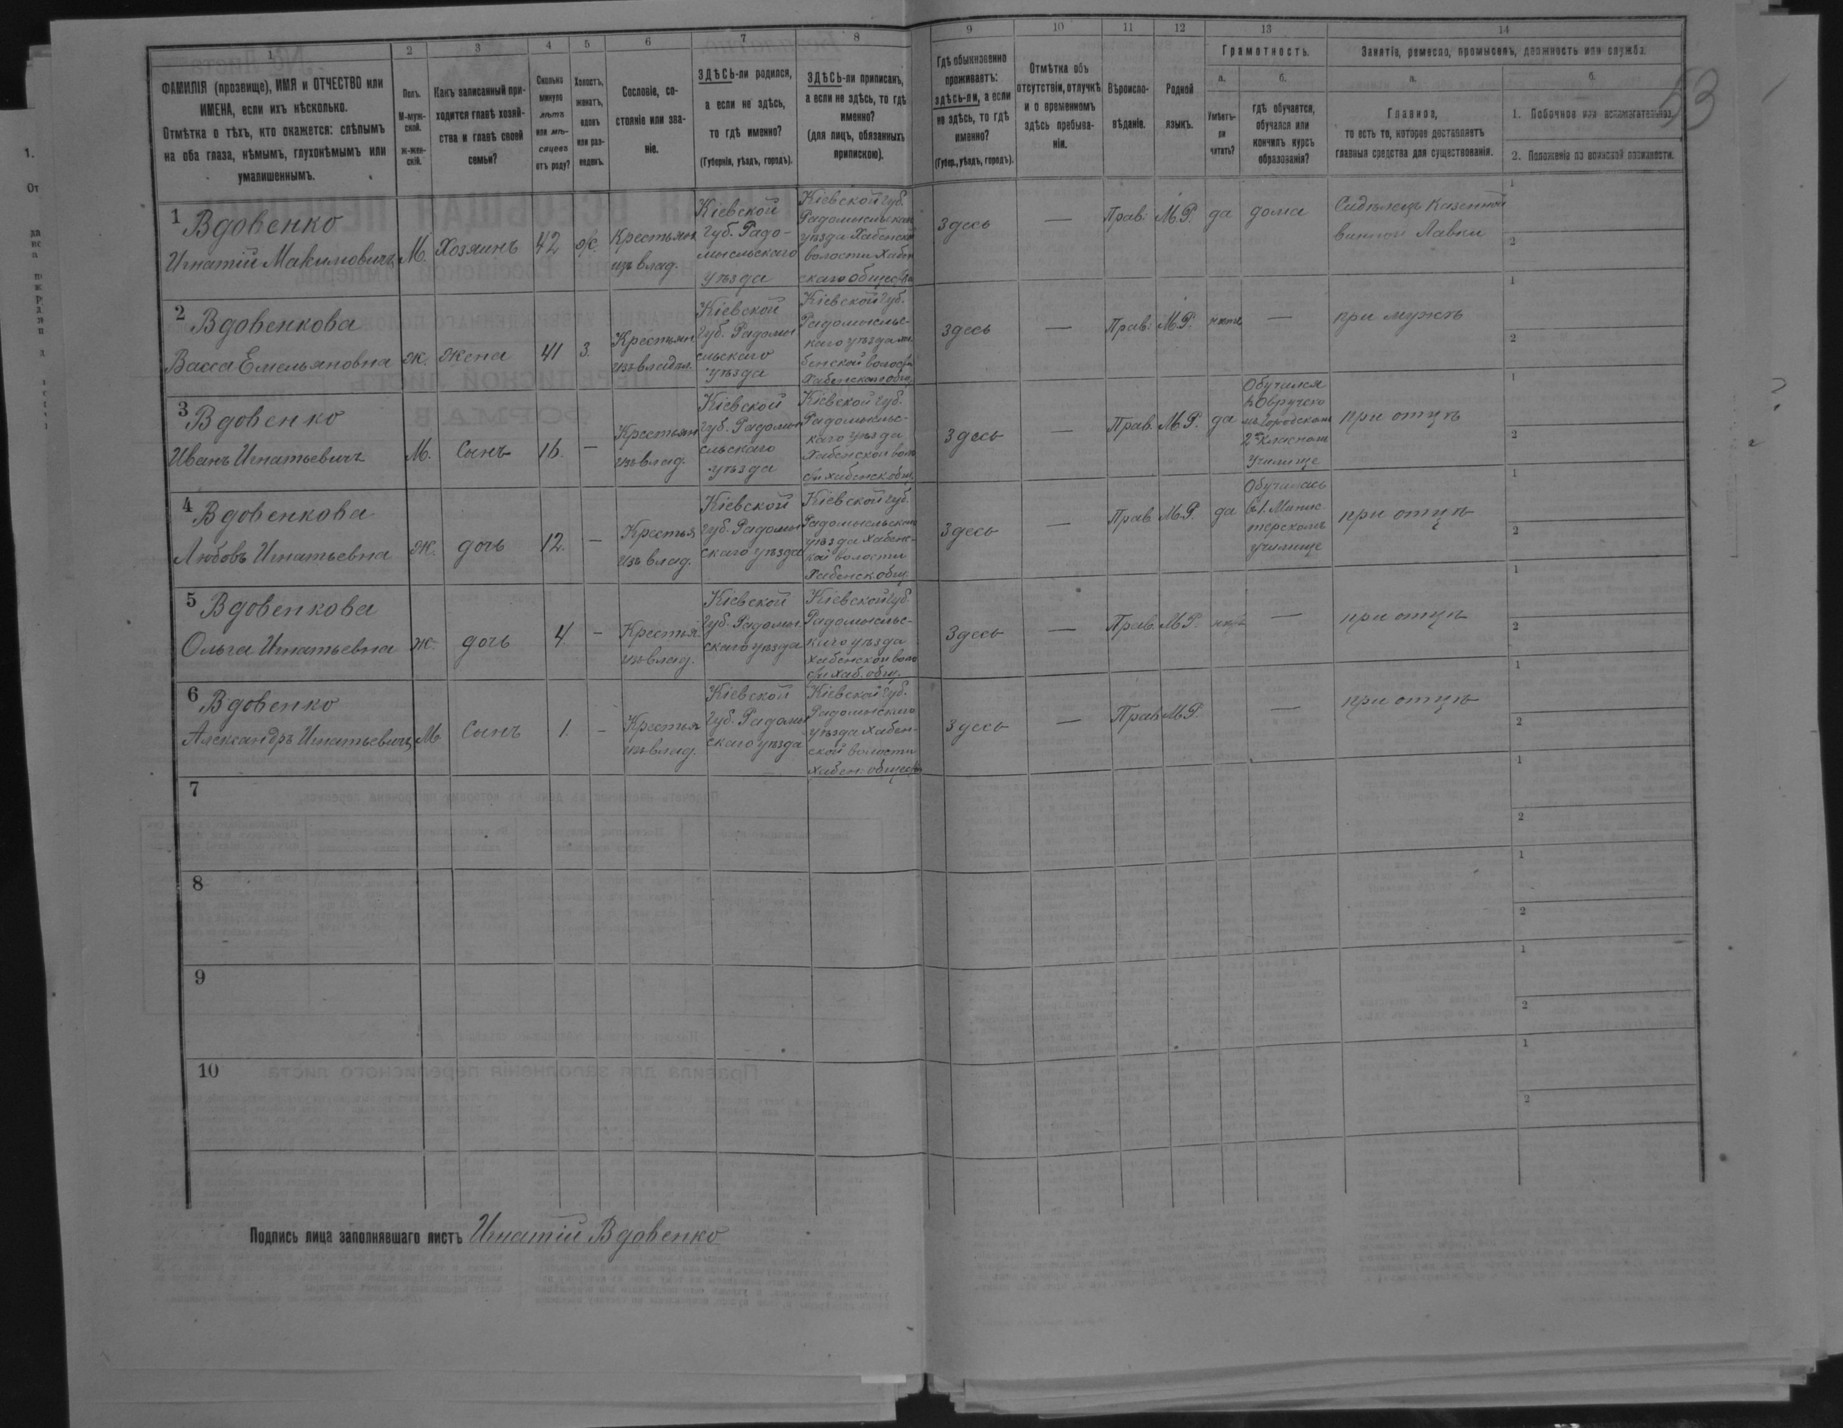 53
1 2 3 4 5 6 7 8 9 10 11 12 13 14
ФАМИЛІЯ (прозвище), ИМЯ и ОТЧЕСТВО или
ИМЕНА, если ихъ нѣсколько.
Отмѣтка о тѣхъ, кто окажется: слѣпымъ
на оба глаза, нѣмымъ, глухонѣмымъ или
умалишеннымъ.
Полъ.
М-муж-
ской.
ж-жен-
скій.
Какъ записанный при-
ходится главѣ хозяй-
ства и главѣ своей
семьи?
Сколько
минуло
лѣтъ
или мѣ-
сяцевъ
отъ роду?
Холостъ,
женатъ,
вдовъ
или раз-
веденъ.
Сословіе, со-
стояніе или зва-
ніе.
ЗДѢСЬ-ли родился,
а если не здѣсь,
то гдѣ именно?
(Губернія, уѣздъ, городъ).
ЗДѢСЬ-ли приписанъ,
а если не здѣсь, то гдѣ
именно?
(для лицъ, обязанныхъ
припискою).
Гдѣ обыкновенно
проживаетъ:
здѣсь-ли, а если
не здѣсь, то гдѣ
именно?
(Губер., уѣздъ, городъ).
Отмѣтка объ
отсутствіи, отлучкѣ
и о временномъ
здѣсь пребыва-
ніи.
Вѣроиспо-
вѣданіе.
Родной
языкъ.
Грамотность.
а.
Умѣетъ-
ли
читать?
б.
гдѣ обучается,
обучался или
кончилъ курсъ
образованія?
Занятія, ремесло, промыселъ, должность или служба.
а.
Главное,
то есть то, которое доставляетъ
главныя средства для существованія.
б.
1. Побочное или вспомогательное.
2. Положеніе по воинской повинности.
1
Вдовенко
Игнатій Максимовичъ
М.
Хозяинъ
42
ж.
Крестьян.
изъ влад.
Кіевской
губ. Радо-
мысльскаго
уѣзда
Кіевской губ.
уѣзда Хабенской
волости Хабен
скаго общества
Здесь
—
Прав.
М.Р.
да
дома
Сидѣлецъ Казенной
винной Лавки
1
2
2
Вдовенкова
Васса Емельяновна
ж.
жена
41
З.
Крестьян
изъ владѣл.
Кіевской
губ. Радомы
сльскаго
уѣзда
Кіевской губ.
Радомысльс-
каго уѣзда Ха
бенской волости
Хабенскаго общ.
Здесь
—
Прав.
М.Р.
нѣтъ
—
при мужѣ
1
2
3
Вдовенко
Иванъ Игнатьевичъ
М.
Сынъ
16.
—
Крестьян
изъ влад.
Кіевской
губ. Радомы
сльскаго
уѣзда
Кіевской губ.
Радомысльс-
каго уѣзда
Хабенской воло
сти хабенск. общ.
Здесь
—
Прав.
М.Р.
да
Обучался
въ Овручско
мъ Городскомъ
2хъ класномъ
училище
при отцѣ
1
2
4
Вдовенкова
Любовь Игнатьевна
ж.
дочь
12.
—
Крестья
изъ влад.
Кіевской
губ. Радомы
скаго уѣзда
Кіевской губ.
Радомысльскаго
уѣзда Хабенс-
кой волости
Хабенск. общ.
Здесь
—
Прав.
М.Р.
да
Обучалась
въ 1. Минис
терскомъ
училище
при отцѣ
1
2
5
Вдовенкова
Ольга Игнатьевна
ж.
дочь
4
—
Крестья.
изъ влад.
Кіевской
губ. Радомы.
скаго уѣзда
Кіевской губ
Радомысльс-
каго уѣзда
Хабенской воло
сти хаб. общ.
Здесь
—
Прав.
М.Р.
нѣтъ
—
при отцѣ
1
2
6
Вдовенко
Александръ Игнатьевичъ
М.
Сынъ
1.
—
Крестья
изъ влад.
Кіевской
губ. Радомы
скаго уѣзда
Кіевской губ.
Радомыскаго
уѣзда Хабен-
ской волости
Хабен. общества
Здесь
—
Прав.
М.Р.
—
при отцѣ
1
2
7
1
2
8
1
2
9
1
2
10
1
2
Подпись лица заполнявшаго листъ Игнатій Вдовенко